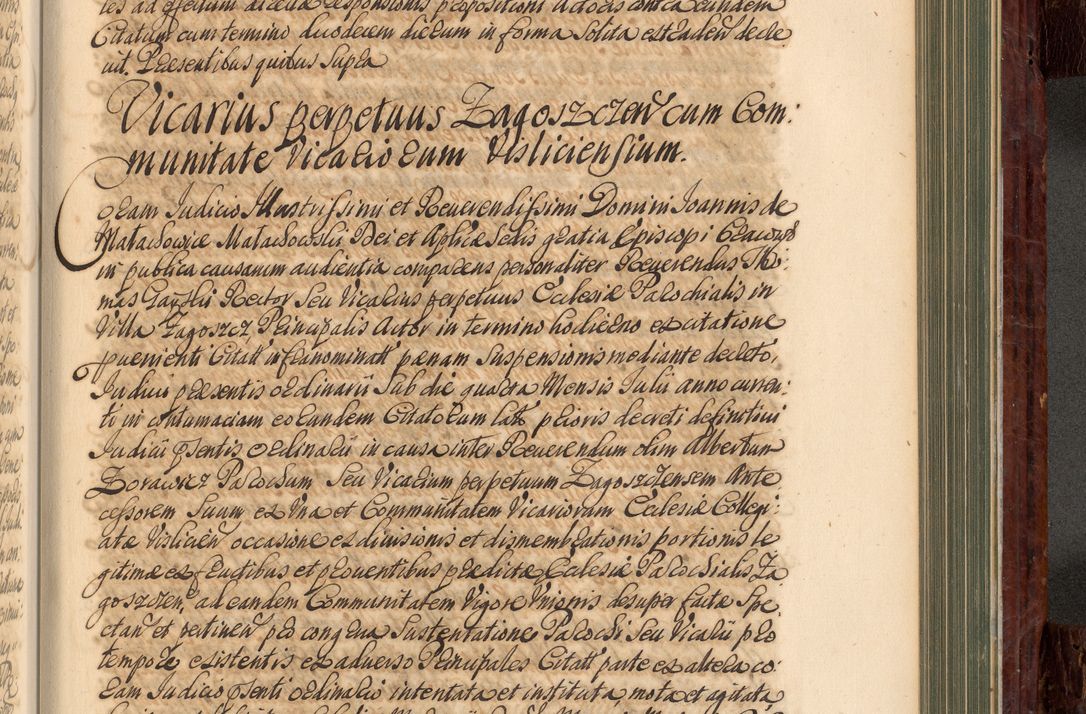 Citatum cum termino duodecem dierum in forma solita est eaden̄ decre
uit. Praesentibus quibus supra
Vicarius perpetuus Zagoszczen̄ cum Com:
munitate Vicariorum Visliciensium.
Coram Judicio Illustrissimi et Reuerendissimi Domini Joannis de
Małachowice Małachowski Dei et Aplicæ Sedis gratia Episcopi Cracou͠
in publica causarum audientia comparens personaliter Reuerendus Tho:
mas Rector seu Vicarius perpetuus Ecclesiæ Parochialis in
Villa Zagoszcz Principalis Actor in termino hodierno ex citatione
puenienti Citatt infranominatt pænam suspensionis mediante decreto,
Judicii præsentis ordinarii sub die quarta Mensis Julii anno curren:
ti in contumaciam eorundem Citatorum latt prioris decreti definitiui
Judicii psentis ordinarii in causa inter Reuerendum olim Albertum
Zorawicz Parochum seu Vicarium perpetuum Zagosztensem Ante
cessorem suum ex Una et Communitatem Vicariorum Ecclesiæ Collegi:
atæ Vislicien̄ occasione ex diuisionis et dismembrationis portionis le
gitimæ ex fructibus et prouentibus prædictæ Ecclesiæ Parochialis Za
goszczen, ad eandem Communitatem Vigore Unionis desuper factæ spe
ctan̄ et pertinen̄ pro congrua sustentatione Parochi seu Vicarii pro
tempore existentis ex aduerso Principales Citatt parte ex altera co:
ram Judicio psenti ordinario intentata et instituta, mota et agitata